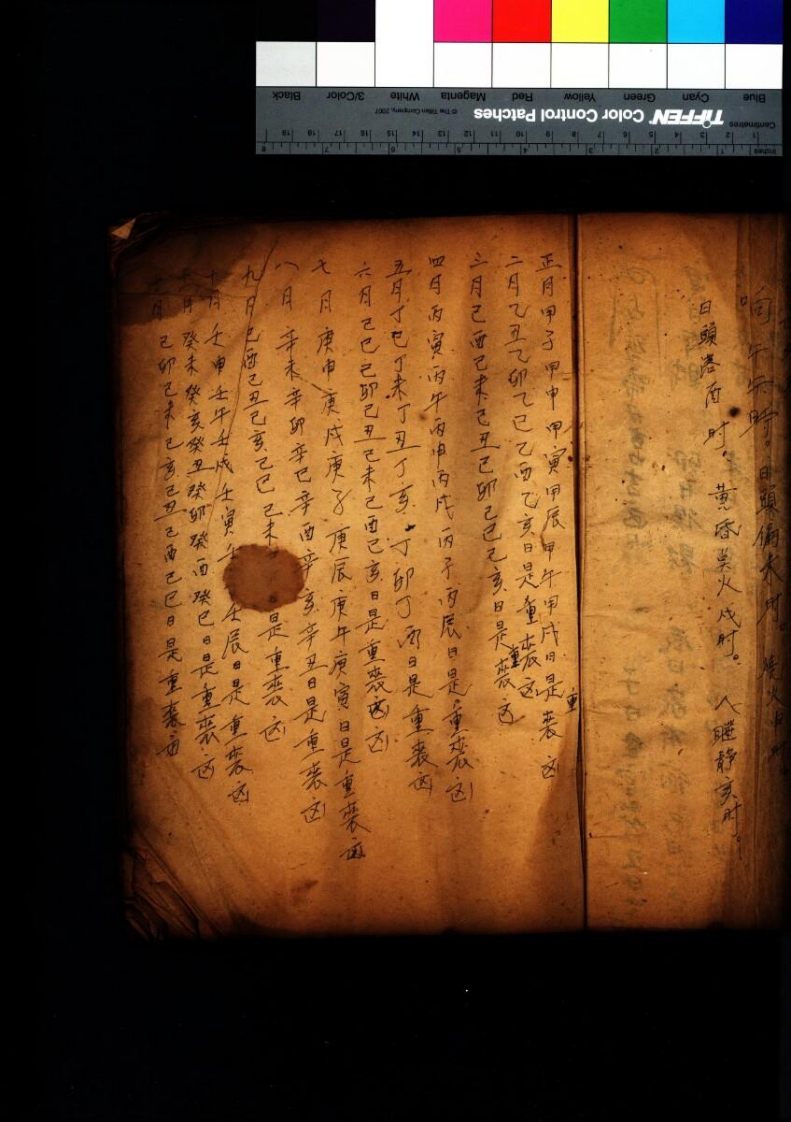 向午午时。日頭偏未时
日頭落酉时。黄昏點火戌时。人睡静亥时。
正月甲子甲申甲寅甲辰甲午甲戌日是重喪凶
二月乙丑乙卯乙巳乙酉乙亥日是重喪凶
三月己酉己未己丑己卯己巳己亥日是重喪凶
四月丙寅丙午丙申丙戌丙子丙辰日是重喪凶
五月丁巳丁未丁丑丁亥丁卯丁酉日是重喪凶
六月己巳己卯己丑己未己酉己亥日是重喪凶
七月庚申庚戌庚子庚辰庚午庚寅日是重喪凶
八月辛未辛卯辛巳辛酉辛亥辛丑日是重喪凶
九月己酉己丑己亥己巳己未日是重喪凶
十月壬申壬午壬戌壬寅壬壬辰日是重喪凶
月癸未癸亥癸丑癸卯癸酉癸巳日是重喪凶
月己卯己未己亥己丑己酉己巳日是重喪凶
Blue Cyan Green Yellow Red Magenta White 3/Color Black
TIFFEN Color Control Patches © The Tiffen Company, 2007
Centimetres
Inches